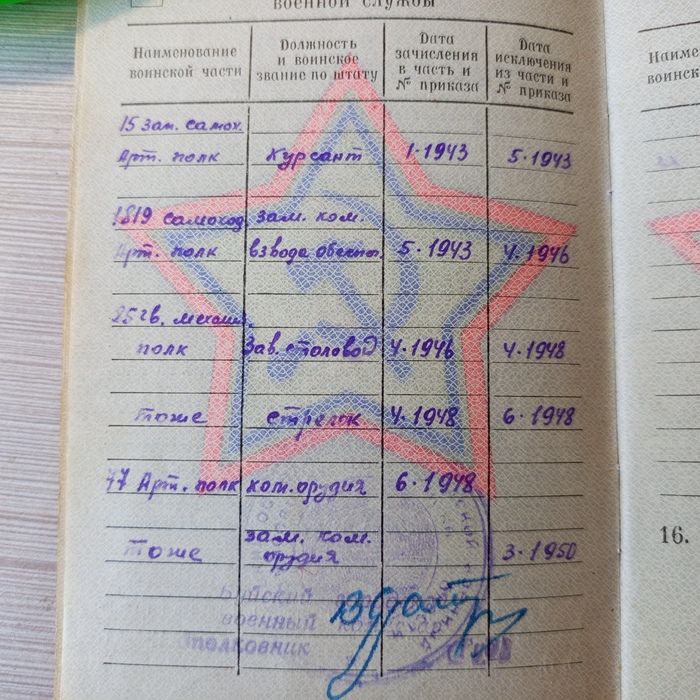 военной службы
Наименование воинской части
Должность и воинское звание по штату
Дата зачисления в часть и № приказа
Дата исключения из части и № приказа
15 зап. самох.
Арт. полк курсант 1·1943 5·1943
1819 самоход. зам. ком.
Арт. полк взвода 5·1943 4·1946
25 гв. механ.
полк Зав. столовой 4·1946 4·1948
тоже стрелок 4·1948 6·1948
77 Арт. полк ком. орудия 6·1948
зам. ком.
тоже орудия 3·1950
военный
полковник
Наиме
воинск
16.